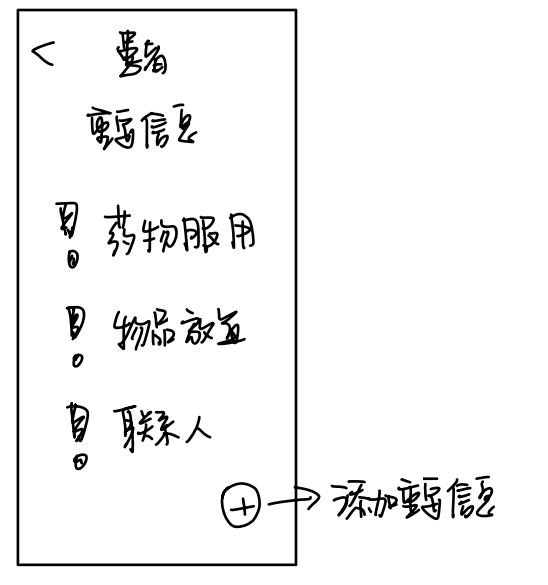 < 患者
重要信息
! 药物服用
! 物品放置
! 联系人
+ → 添加重要信息